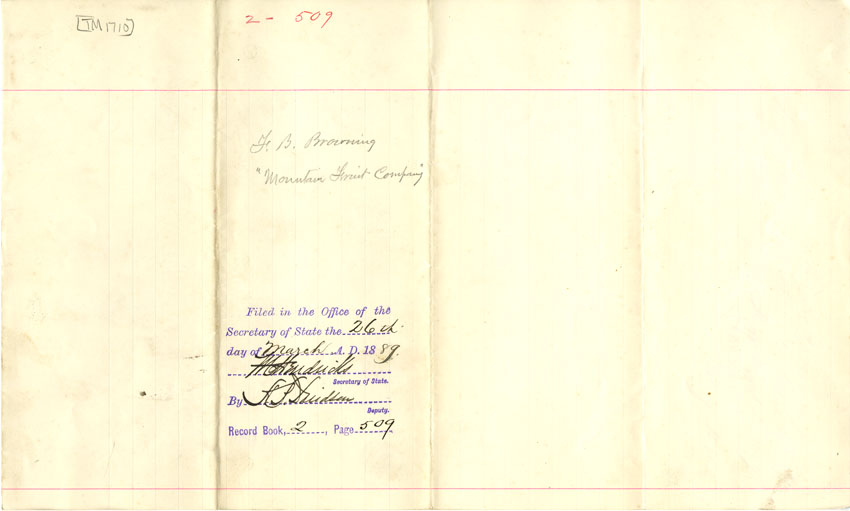 [TM1710]
2 - 509
F. B. Browning
"Mountain Fruit Company"
Filed in the Office of the
Secretary of State the 26th
day of March A. D. 1889.
W C Hendricks
Secretary of State.
By
Deputy.
Record Book, 2, Page 509